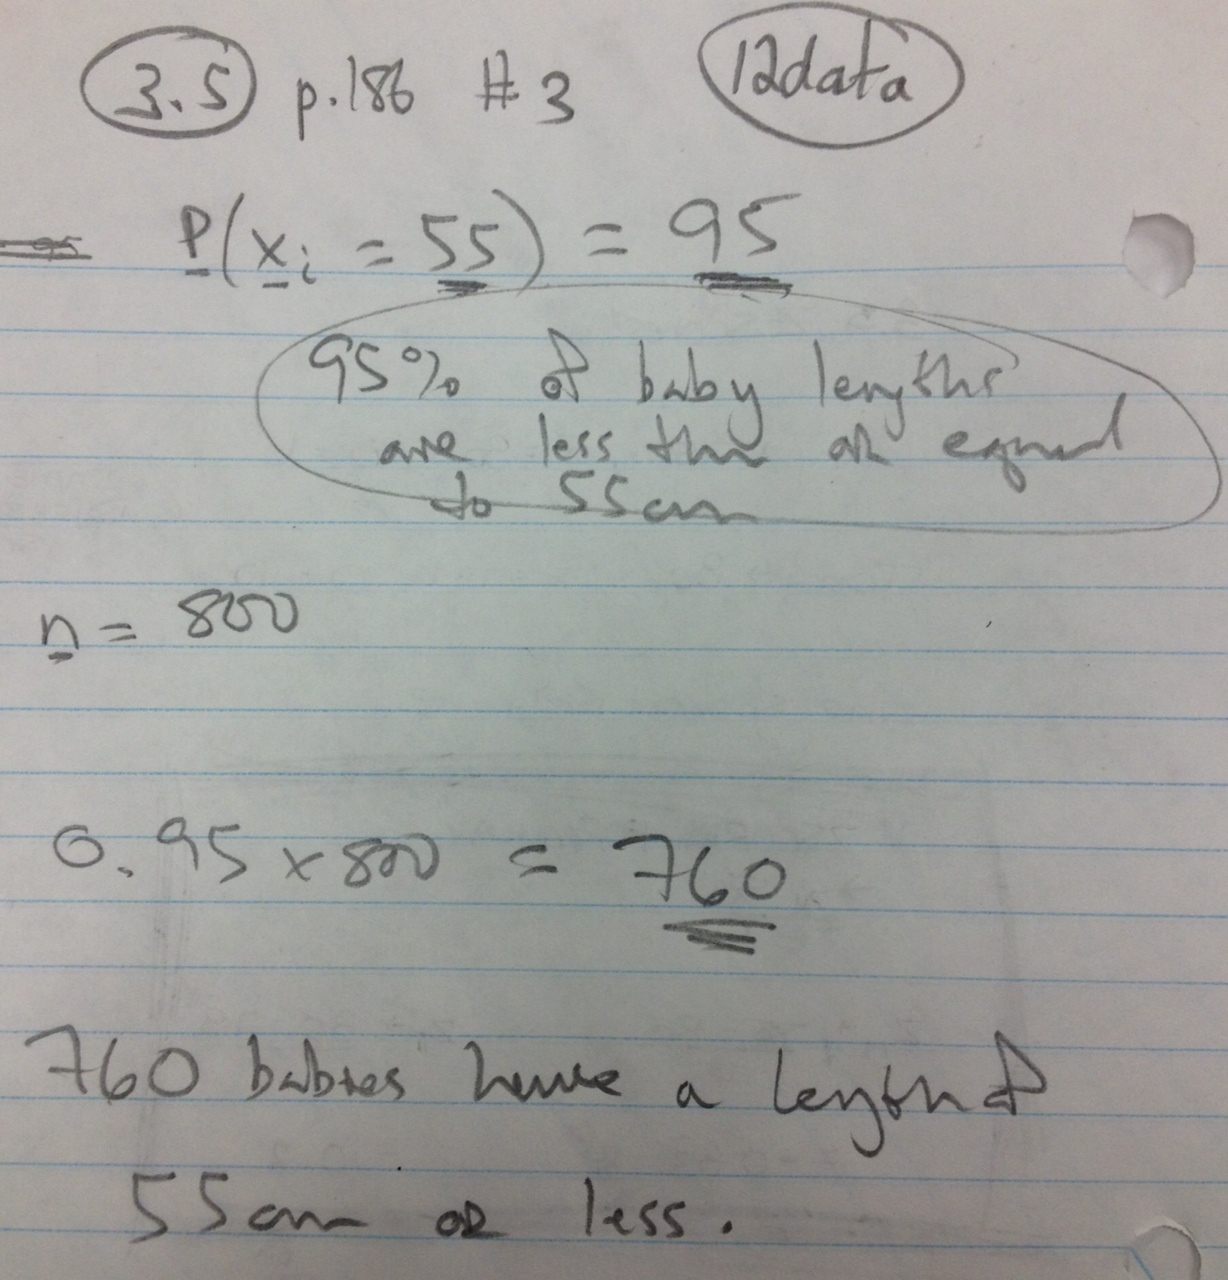 3.5 p.186 # 3 12data
P(xi = 55) = 95
95% of baby lengths
are less than or equal
to 55cm
n = 800
0.95 x 800 = 760
760 babies have a length of
55cm or less.